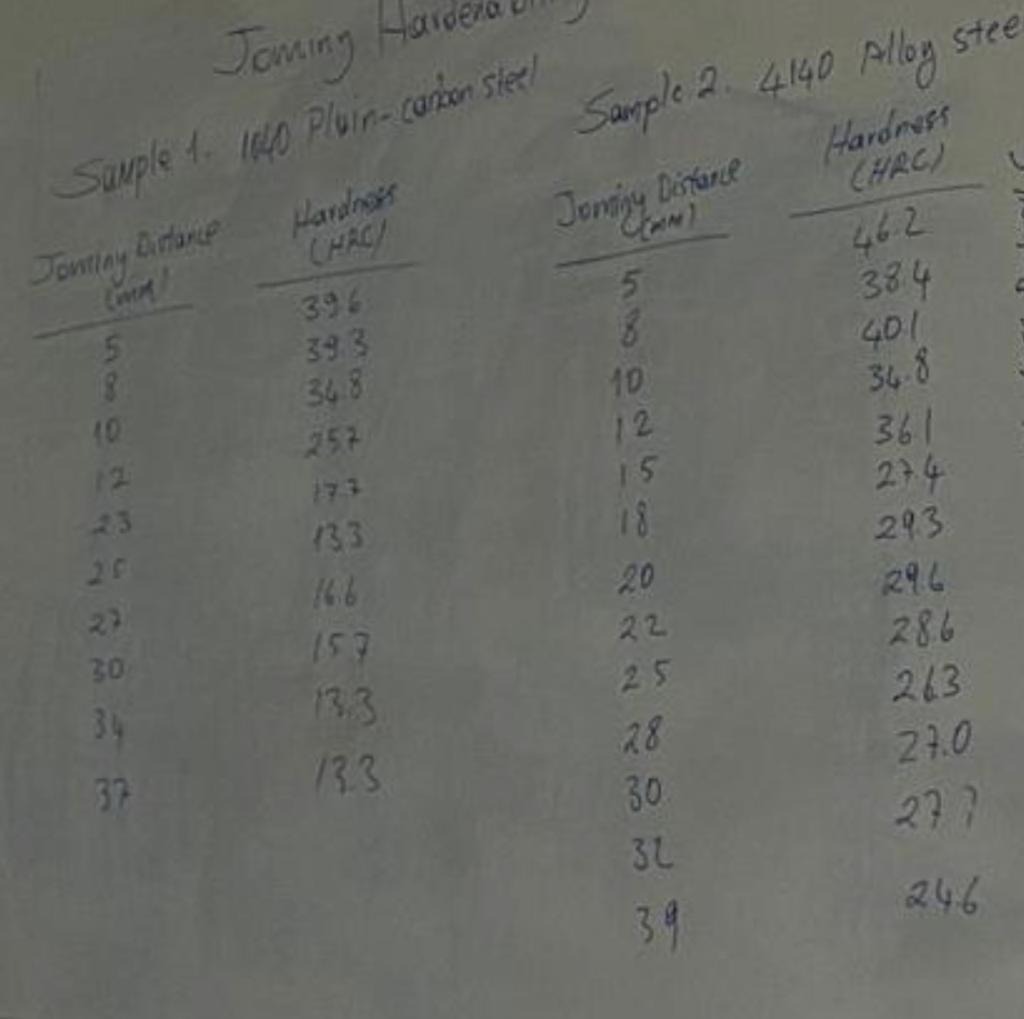 Jominy Hardenability
Sample 1. 1040 Plain-carbon steel
Jominy Distance (mm) Hardness (HRC)
5 39.6
8 39.3
10 34.8
12 25.7
23 17.7
25 13.3
27 16.6
30 15.7
34 13.3
37 13.3
Sample 2. 4140 Alloy steel
Jominy Distance (mm) Hardness (HRC)
5 46.2
8 38.4
10 40.1
12 34.8
15 36.1
18 27.4
20 29.3
22 29.6
25 28.6
28 26.3
30 27.0
32 27.7
39 24.6